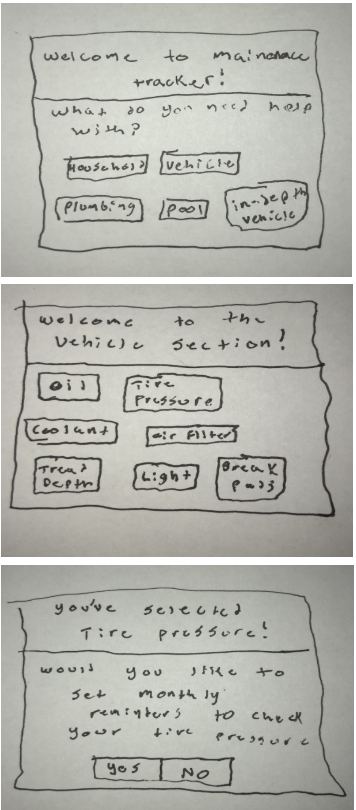 Welcome to mainenace
tracker!
What do you need help
with?
Household Vehicle
Plumbing Pool in-depth
vehicle
Welcome to the
Vehicle section!
Oil Tire
Pressure
Coolant air filter
Tread
Depth
Light
Break
Pads
You've selected
Tire pressure!
would you like to
set monthly
reminters to check
your tire pressure
Yes NO